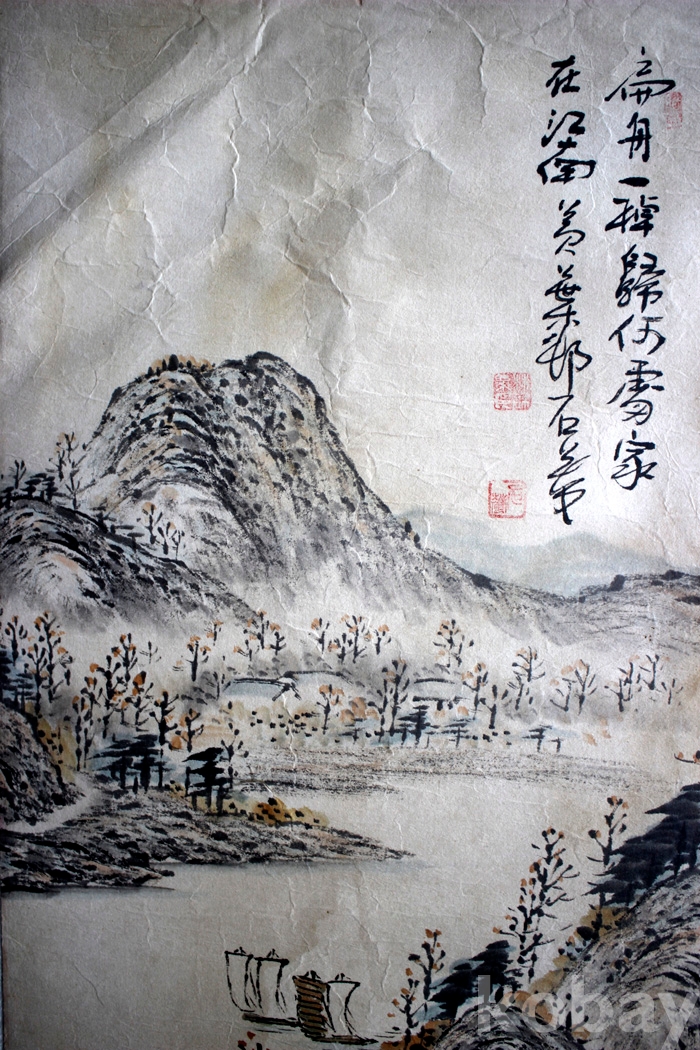 扁舟一棹歸何處家
在江南黃葉邨石
kobay